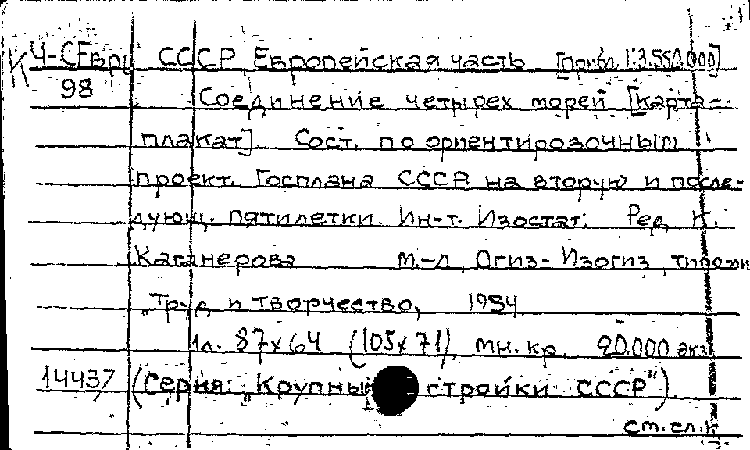 К Ч-СЕвр СССР Европейская часть [прибл. 1:3.550.000]
98 Соединение четырех морей [Карта-
плакат]. Сост. по ориентировочным
проект. Госплана СССР на вторую и после-
дующ. пятилетки. Ин-т. Изостат. Ред. К.
Каганерова М.-Л, Огиз-Изогиз,
"Труд и творчество, 1934
1л. 87х64 (105х71), мн. кр. 20.000 экз.
14437 (Серия: "Крупны стройки СССР").
см. сл. к